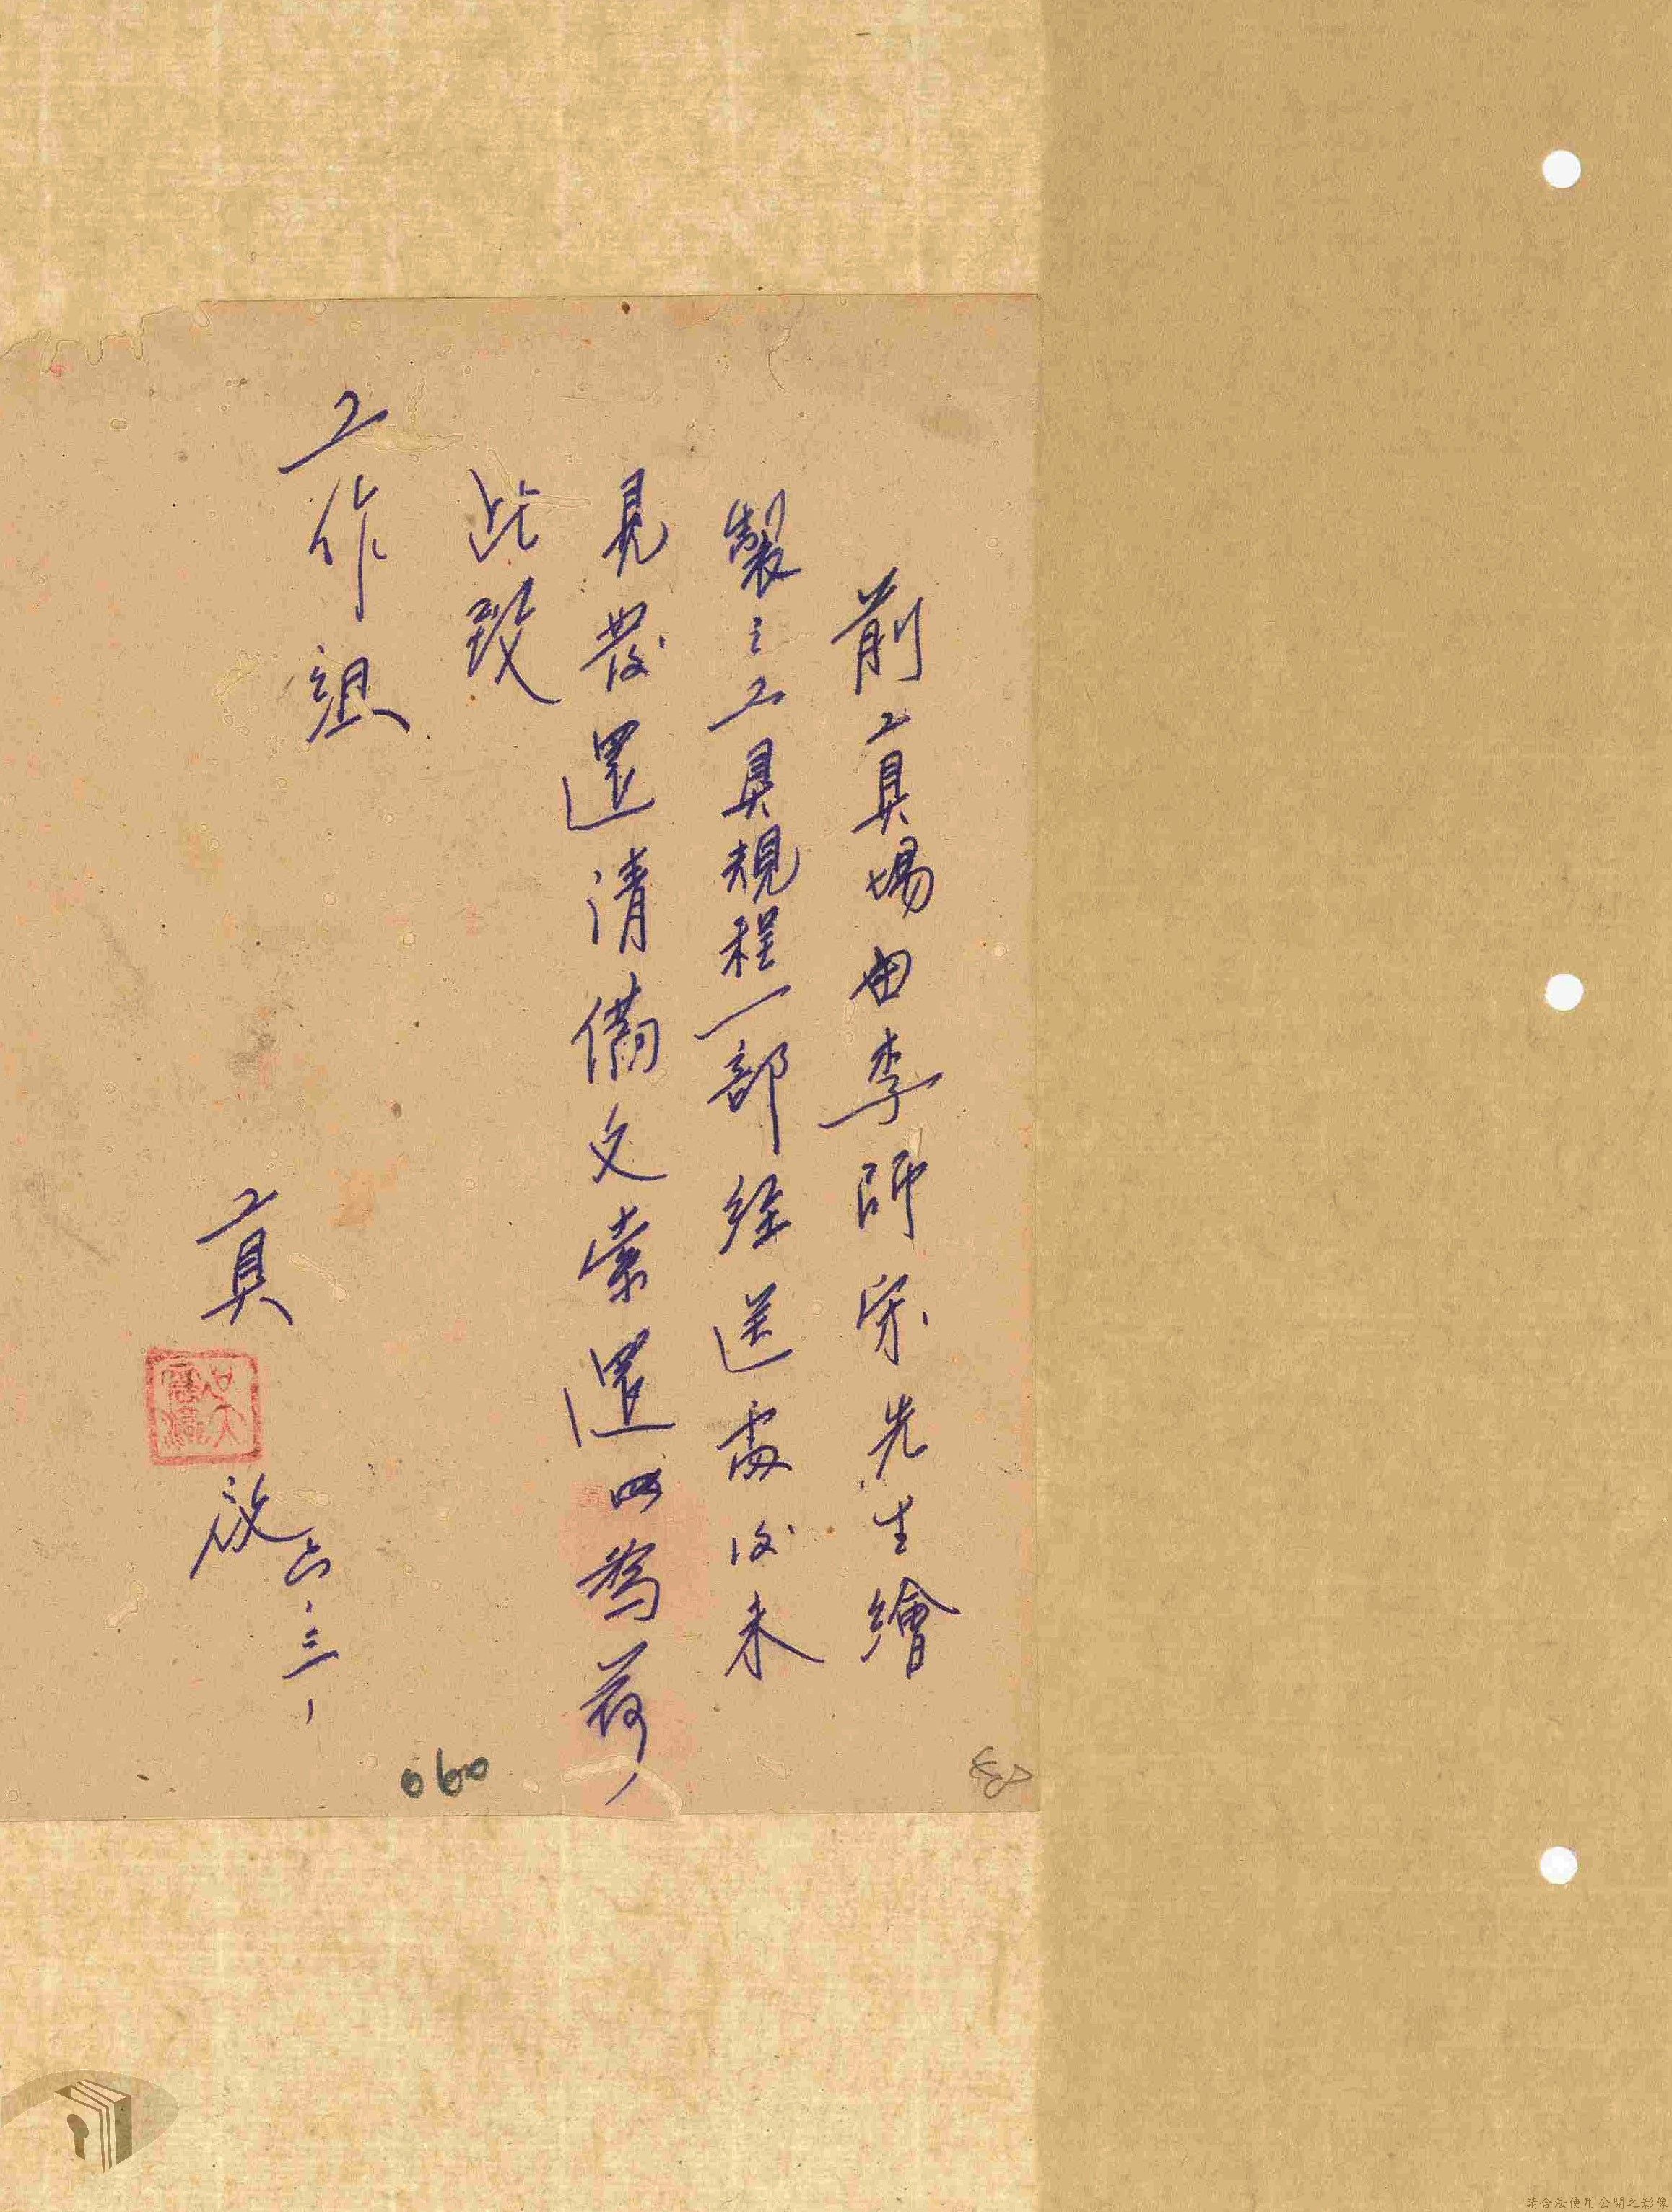 前工具場由李師宗先生繪
製之工具規程一部經送處後未
見發還請備文索還以為荷
此致
工作組
工具
啟 六.三
060
請合法使用公開之影像